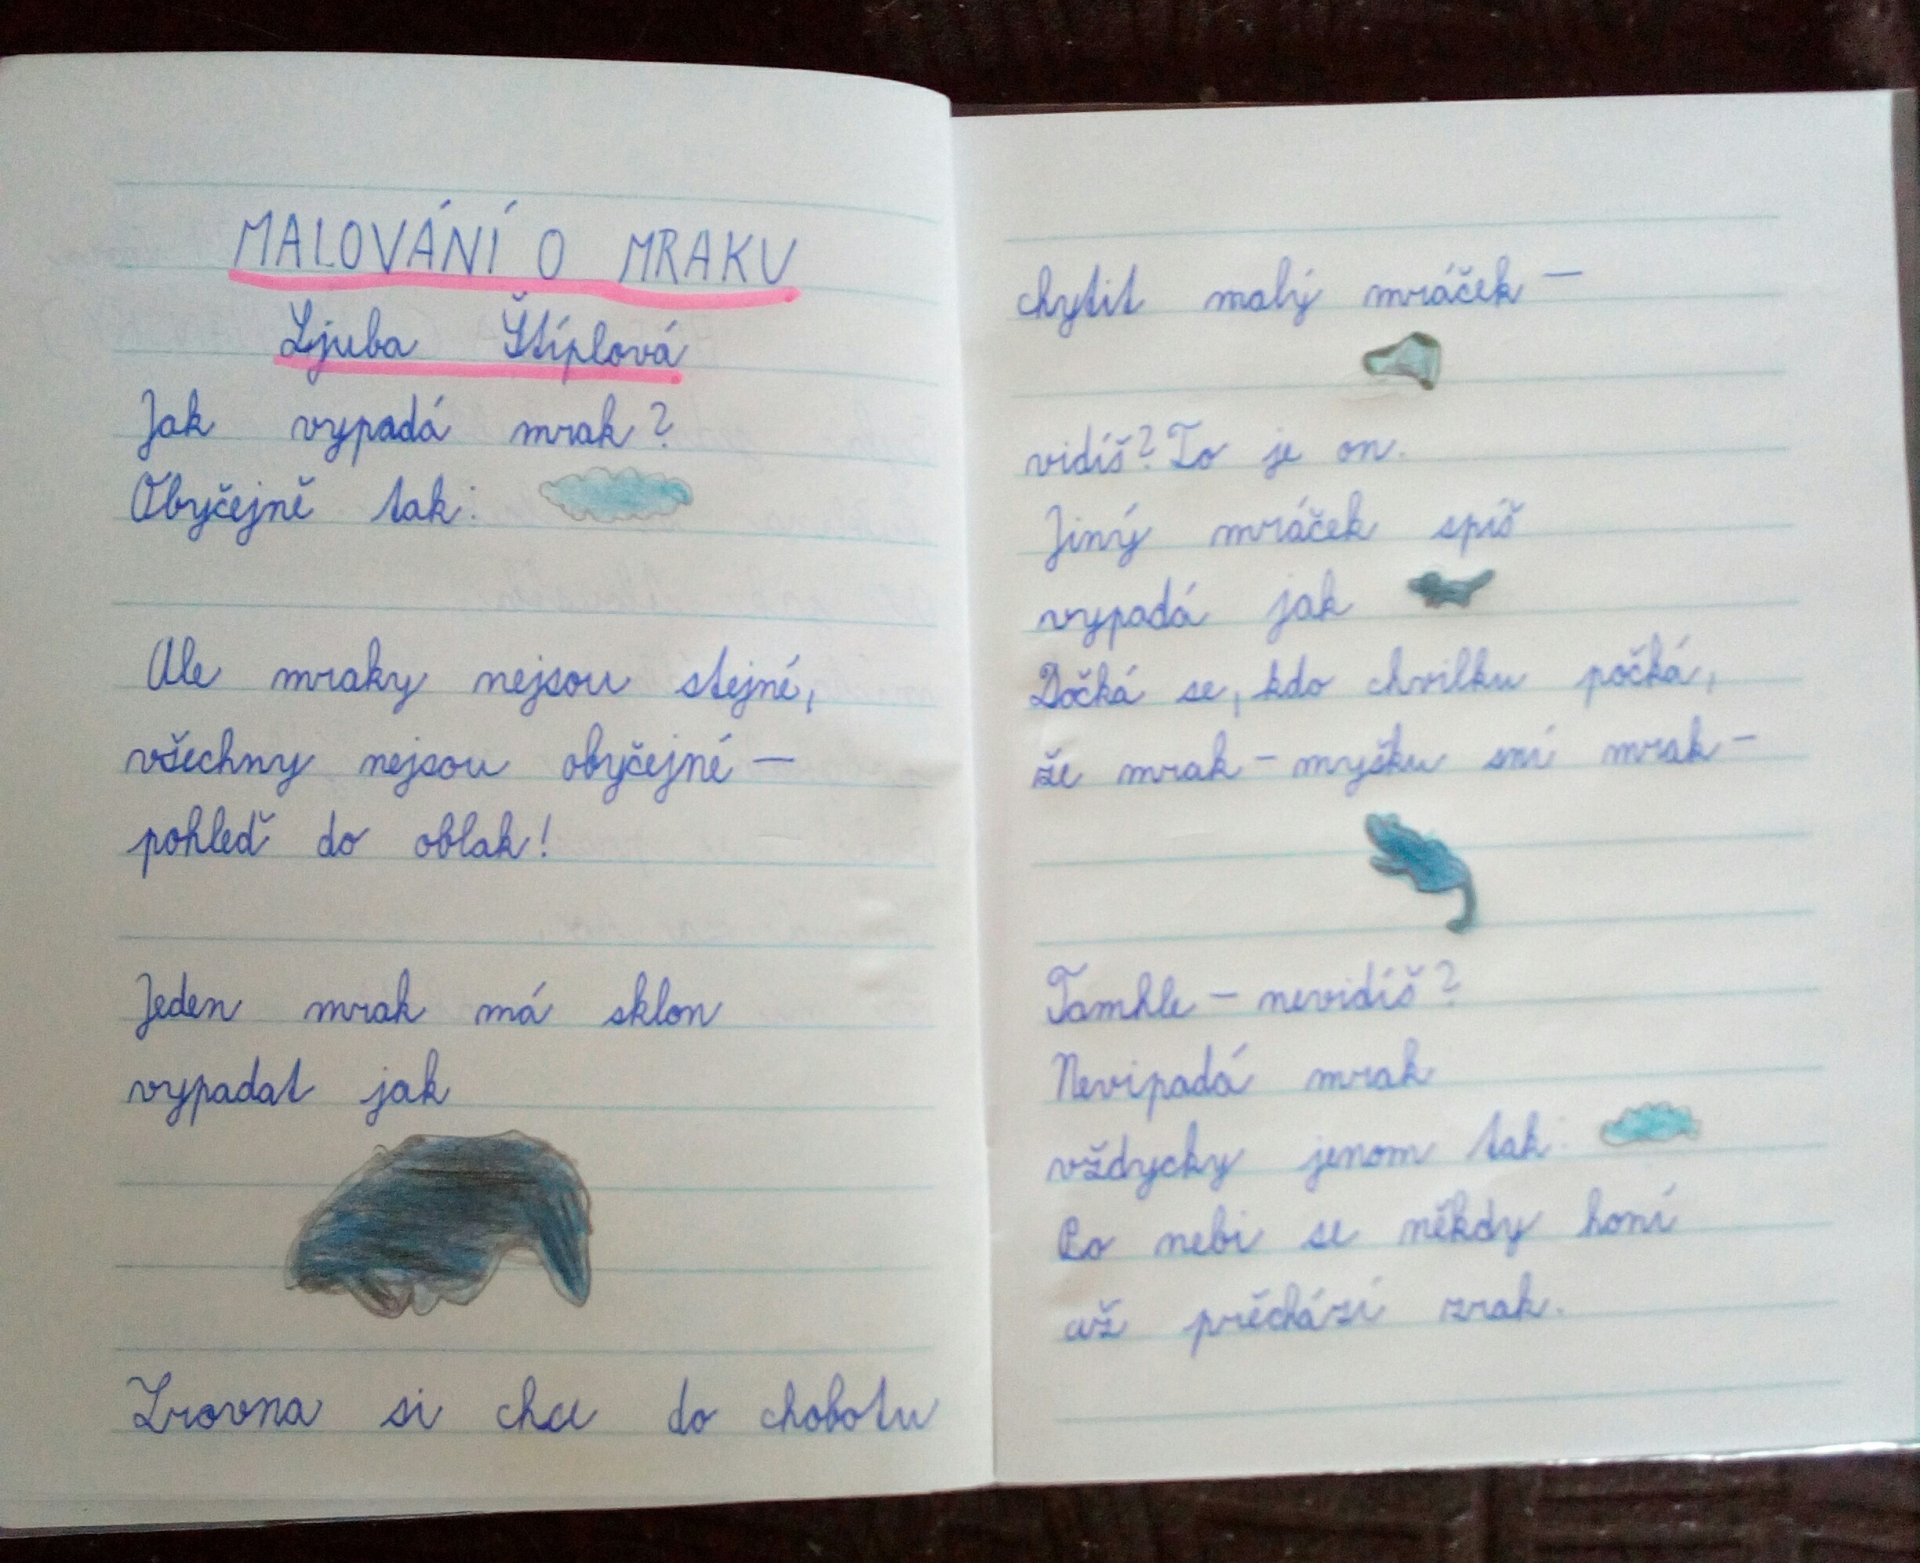 MALOVÁNÍ O MRAKU
Ljuba Štíplová
Jak vypadá mrak?
Obyčejně tak:
Ale mraky nejsou stejné,
všechny nejsou obyčejné –
pohleď do oblak!
Jeden mrak má sklon
vypadat jak
Zrovna si chce do chobotu
chytit malý mráček –
vidíš? To je on.
Jiný mráček spíš
vypadá jak
Dočká se, kdo chvilku počká,
že mrak – myšku sní mrak –
Tamhle – nevidíš?
Nevipadá mrak
vždycky jenom tak:
Po nebi se někdy honí
až přěcházi zrak.